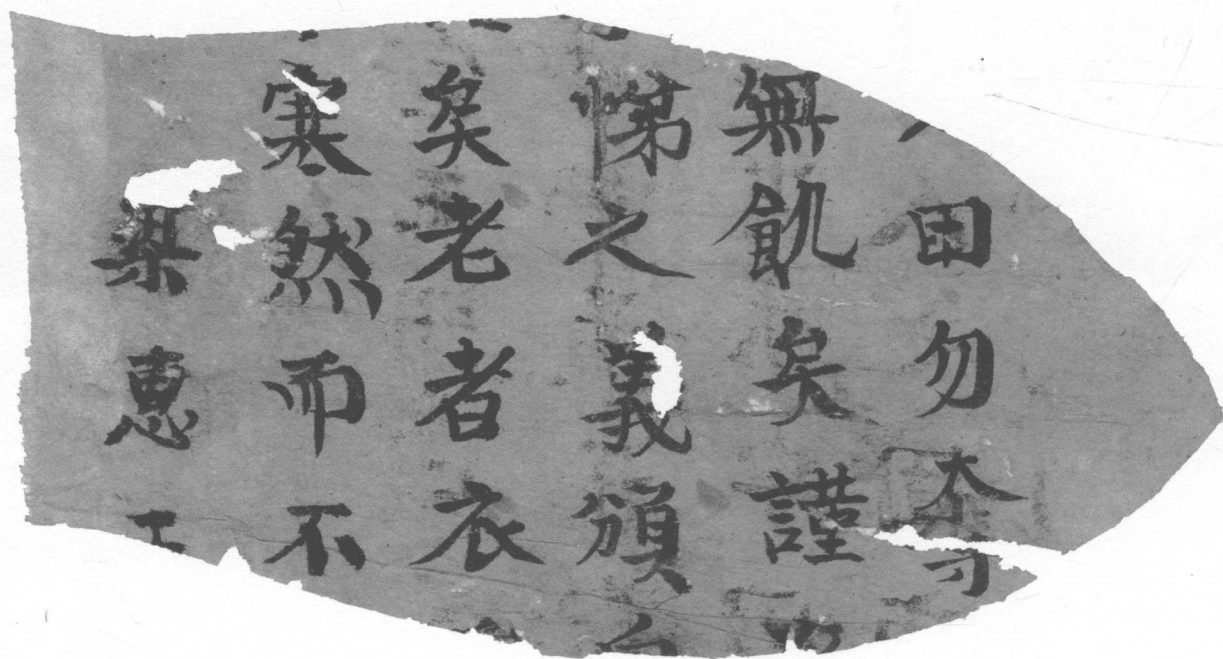 田勿奪
無飢矣謹
悌之義頒
矣老者衣
寒然而不
梁惠王